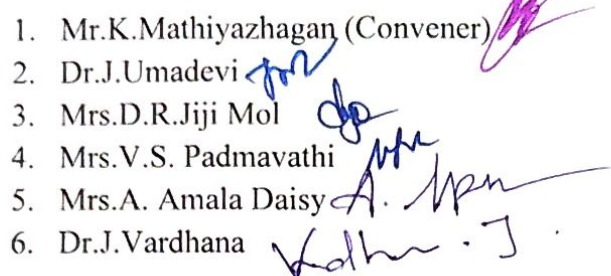 1. Mr.K.Mathiyazhagan (Convener)
2. Dr.J.Umadevi
3. Mrs.D.R.Jiji Mol
4. Mrs.V.S. Padmavathi
5. Mrs.A. Amala Daisy A.
6. Dr.J.Vardhana